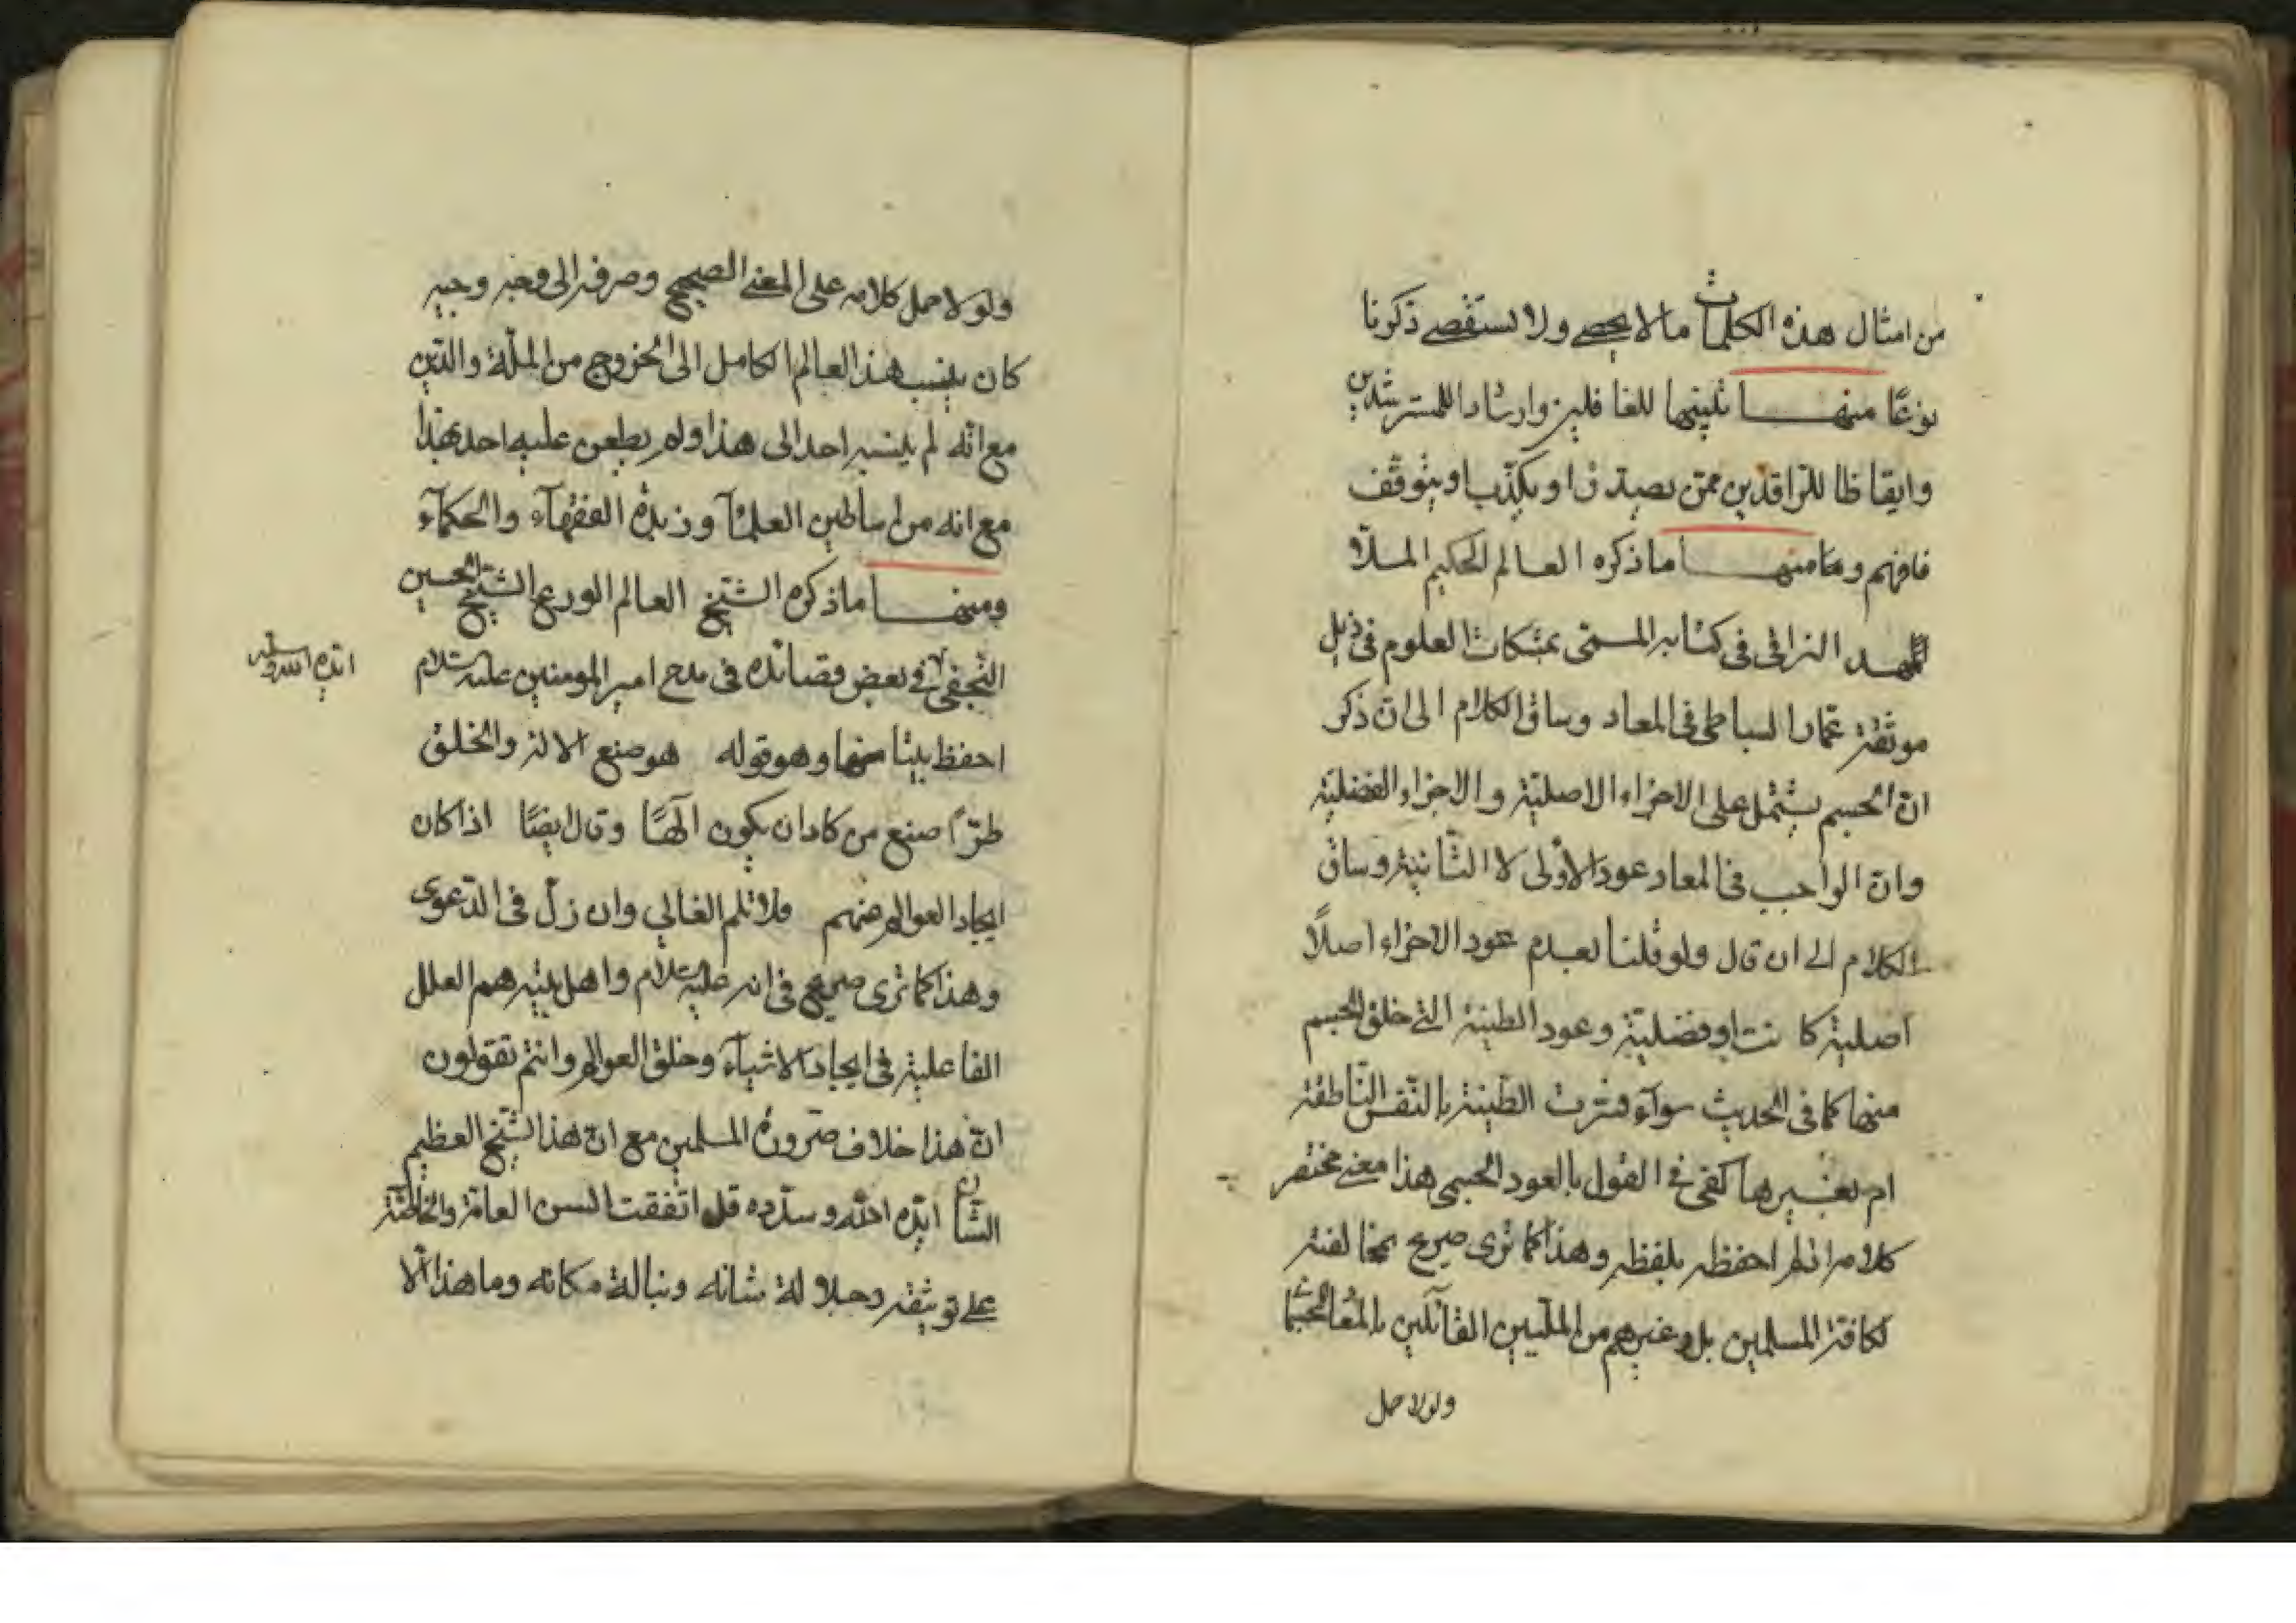 من امثال هذه الكلمات ما لا يحصى ولا تستقصى ذكرنا
نوعًا منها تنبيها للغافلين وارشادا للمسترشدين
وايقاظا للراقدين ممن يصدق او يكذب او يتوقف
فافهم ومنها ما ذكره العالم الحكيم الملا
المهد النراقي في كتابه المسمى بمشكات العلوم في ذيل
موثقة عمار الساباطي في المعاد وساق الكلام الى ان ذكر
ان الجسم يشتمل على الاجزاء الاصلية والاجزاء الفضلية
وان الواجب في المعاد عود الاولى لا الثانية وساق
الكلام الى ان قال ولو قلنا بعدم عود الاجزاء اصلًا
اصلية كانت او فضلية وعود الطينة التي خلق الجسم
منها كما في الحديث سوآء فسرت الطينة بالنفس الناطقة
ام بغيرها كفى في القول بالعود الجسمي هذا معنى مختصر
كلامه اذ لم احفظه بلفظه وهذا كما ترى صريح بمخالفته
لكافة المسلمين بل وغيرهم من المليين القائلين بالمعاد الجسما
ولولا حمل
ولولا حمل كلامه على المعنى الصحيح وصرفه الى وجه وجيه
كان ينسب هذا العالم الكامل الى الخروج من الملة والدين
مع انه لم ينسبه احد الى هذا ولم يطعن عليه احد بهذا
مع انه من اساطين العلمآ وزبدة الفقهآء والحكمآء
ومنها ما ذكره الشيخ العالم الورع الشيخ حسين
النجفي في بعض قصائده في مدح امير المومنين عليه السلام
ايده الله وسلمه
احفظ بيتا منها وهو قوله هو صنع الاله والخلق
طرّا صنع من كاد ان يكون آلهًا وقال ايضًا اذا كان
ايجاد العوالم منهم فلا تلم الغالي وان زلّ في الدعوى
وهذا كما ترى صريح في انه عليه السلام واهل بيته هم العلل
الفاعلية في ايجاد الاشيآء وخلق العوالم وانتم تقولون
ان هذا خلاف ضرورة المسلمين مع ان هذا الشيخ العظيم
الشان ايده الله وسدده قد اتفقت السن العامة والخاصة
على توثيقه وجلالة شانه ونبالة مكانه وما هذا الا